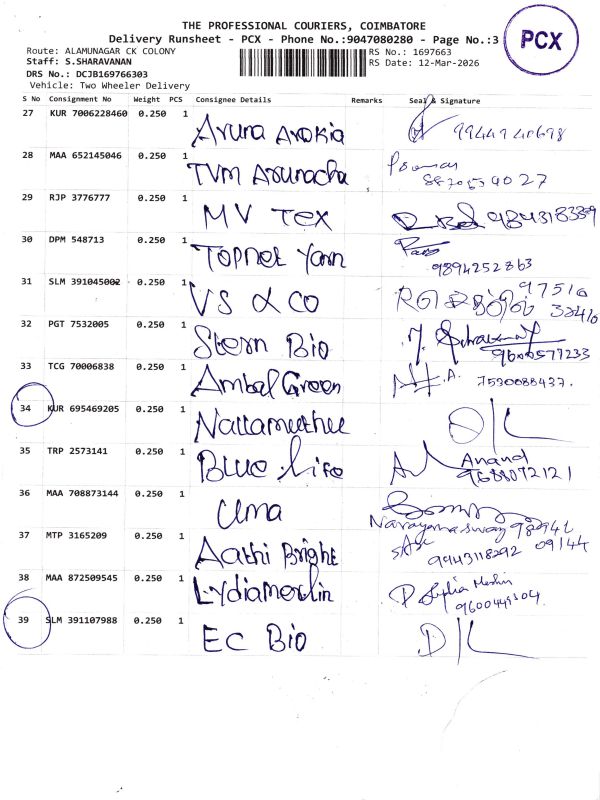 THE PROFESSIONAL COURIERS, COIMBATORE
Delivery Runsheet - PCX - Phone No.:9047080280 - Page No.:3
PCX
Route: ALAMUNAGAR CK COLONY
RS No.: 1697663
Staff: S.SHARAVANAN
RS Date: 12-Mar-2026
DRS No.: DCJB169766303
Vehicle: Two Wheeler Delivery
S No Consignment No Weight PCS Consignee Details Remarks Seal & Signature
27 KUR 7006228460 0.250 1 Aruna Arokia
28 MAA 652145046 0.250 1 TVM Arunacha
29 RJP 3776777 0.250 1 MV Tex
30 DPM 548713 0.250 1 Topnet Yarn
9894252863
31 SLM 391045002 0.250 1 VS & CO
32 PGT 7532005 0.250 1 Stern Bio
9600577233
33 TCG 70006838 0.250 1 Ambal Green
34 KUR 695469205 0.250 1 Nallamuthu
35 TRP 2573141 0.250 1 Blue Life Anand
9688072121
36 MAA 708873144 0.250 1 Uma
Narayanaswamy 98941
37 MTP 3165209 0.250 1 Aathi Bright
09144
9943118292
38 MAA 872509545 0.250 1 Lydiamerlin
9600449304
39 SLM 391107988 0.250 1 EC Bio